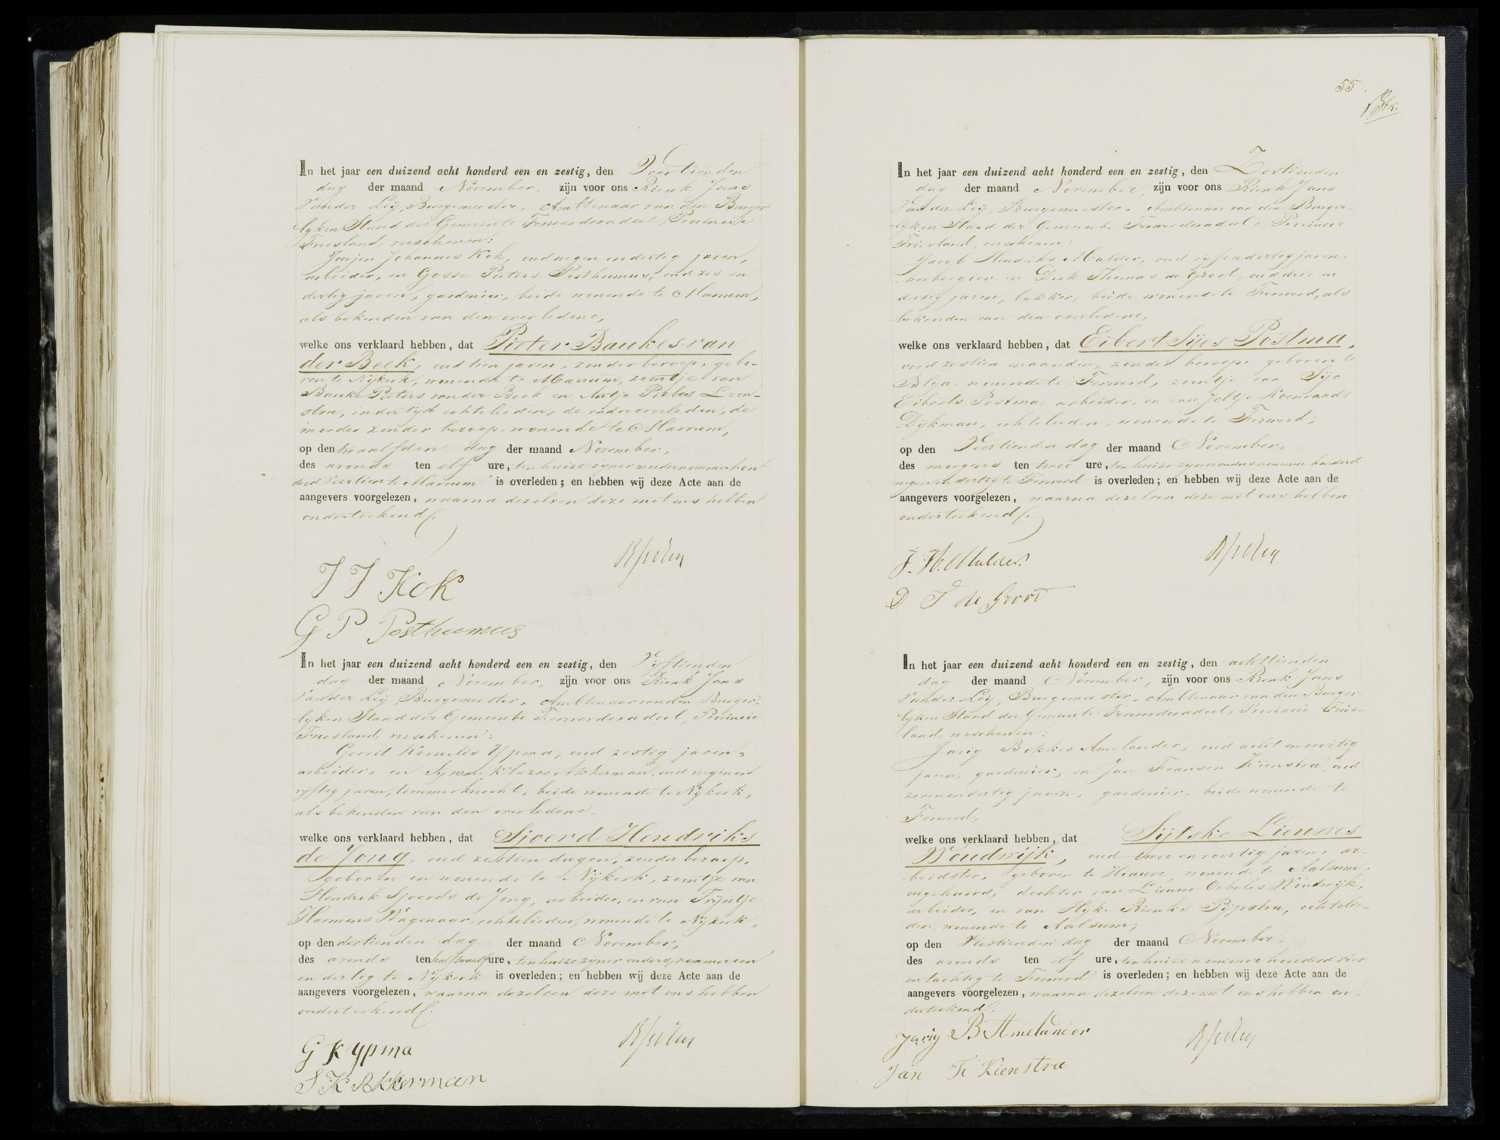 In het jaar een duizend acht honderd een en zestig, den Veertienden
dag der maand November, zijn voor ons Rienk Jans
van der Leij, Burgemeester, Ambtenaar van den Burger-
lijken Stand der Gemeente Ferwerderadeel, Provincie
Friesland, verschenen:
Johannes Kok, oud negen en dertig jaren,
arbeider, en Gosse Pieters Posthumus, oud zes en
dertig jaren, gardenier, beide wonende te Marrum,
als bekenden van den overledene,
welke ons verklaard hebben, dat Pieter Baukes van
der Beek, oud tien jaren, zonder beroep, gebo-
ren te Nijkerk, wonende te Marrum, zoontje van
Bauke Pieters van der Beek en Antje Piebes
echtelieden, de vader overleden, de
moeder zonder beroep, wonende te Marrum,
op den twaalfden dag der maand November,
des avonds ten elf ure, ten huize zijner moeder nummer hon
derd veertien te Marrum is overleden; en hebben wij deze Acte aan de
aangevers voorgelezen, waarna dezelven deze met ons hebben
onderteekend/.
RJvdLeij
J J Kok
G P Posthumus
In het jaar een duizend acht honderd een en zestig, den Vijftienden
dag der maand November, zijn voor ons Rienk Jans
van der Leij, Burgemeester, Ambtenaar van den Burger-
lijken Stand der Gemeente Ferwerderadeel, Provincie
Friesland, verschenen:
Gerrit Kornelis Ypma, oud zestig jaren,
arbeider, en Akkerman, oud negen en
vijftig jaren, timmerknecht, beide wonende te Nijkerk,
als bekenden van den overledene.
welke ons verklaard hebben, dat Sjoerd Hendriks
de Jong, oud zestien dagen, zonder beroep,
geboren en wonende te Nijkerk, zoontje van
Hendrik Sjoerds de Jong, arbeider, en van Trijntje
Harmens Wagenaar, echtelieden, wonende te Nijkerk,
op den dertienden dag der maand November,
des avonds ten half twaalf ure, ten huize zijner ouders, nummer een
en dertig te Nijkerk is overleden; en hebben wij deze Acte aan de
aangevers voorgelezen, waarna dezelven deze met ons hebben
onderteekend/.
RJvdLeij
G K Ypma
S K Akkerman
55.
In het jaar een duizend acht honderd een en zestig, den Zestienden
dag der maand November, zijn voor ons Rienk Jans
van der Leij, Burgemeester, Ambtenaar van den Burger-
lijken Stand der Gemeente Ferwerderadeel, Provincie
Friesland, verschenen:
Jacob Hendriks Mulder, oud vijf en dertig jaren,
en Dirk Thomas de Groot, oud drie en
dertig jaren, bakker, beide wonende te Ferwerd, als
bekenden van den overledene,
welke ons verklaard hebben, dat Eibert Sijes Postma,
oud zestien maanden, zonder beroep, geboren te
wonende te Ferwerd, zoontje van Sije
Eiberts Postma, arbeider, en van Jeltje
Dijkman, echtelieden, wonende te Ferwerd,
op den Veertienden dag der maand November,
des morgens ten twee ure, ten huize zijner ouders nummer honderd
negen en dertig te Ferwerd is overleden; en hebben wij deze Acte aan de
aangevers voorgelezen, waarna dezelven deze met ons hebben
onderteekend/.
RJvdLeij
J. H. Mulder
D T de Groot
In het jaar een duizend acht honderd een en zestig, den achttienden
dag der maand November, zijn voor ons Rienk Jans
van der Leij, Burgemeester, Ambtenaar van den Burger-
lijken Stand der Gemeente Ferwerderadeel, Provincie Fries-
land, verschenen:
Jarig Bokkes Amelander, oud acht en veertig
jaren, gardenier, en Jan Fransen Kienstra, oud
zeven en dertig jaren, gardenier, beide wonende te
Ferwerd,
welke ons verklaard hebben, dat Sijtske Lieuwes
Woudwijk, oud twee en veertig jaren, ar-
beidster, geboren te Hiaure, wonende te Aalsum,
ongehuwd, dochter van Lieuwe Woudwijk,
arbeider, en van Hijke Rienks Pijpstra, echtelie-
den, wonende te Aalsum,
op den Zestienden dag der maand November,
des avonds ten elf ure, ten huize nummer honderd vier
en tachtig te Ferwerd is overleden; en hebben wij deze Acte aan de
aangevers voorgelezen, waarna dezelven deze met ons hebben on-
derteekend/.
Jarig B Amelander
RJvdLeij
Jan F Kienstra